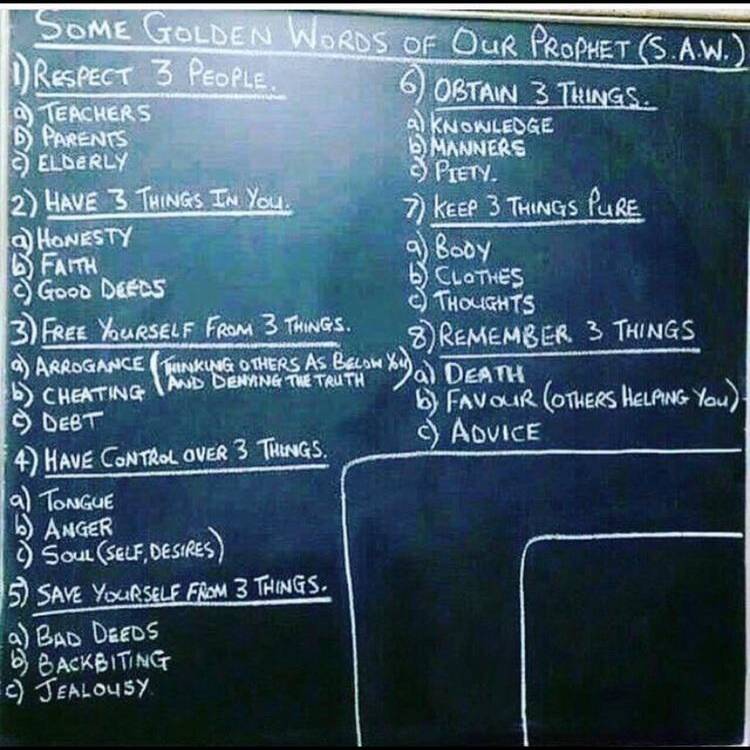 SOME GOLDEN WORDS OF OUR PROPHET (S.A.W.)
1) RESPECT 3 PEOPLE.
a) TEACHERS
b) PARENTS
c) ELDERLY
2) HAVE 3 THINGS IN YOU.
a) HONESTY
b) FAITH
c) GOOD DEEDS
3) FREE YOURSELF FROM 3 THINGS.
a) ARROGANCE (THINKING OTHERS AS BELOW YOU
AND DENYING THE TRUTH)
b) CHEATING
c) DEBT
4) HAVE CONTROL OVER 3 THINGS.
a) TONGUE
b) ANGER
c) SOUL (SELF, DESIRES)
5) SAVE YOURSELF FROM 3 THINGS.
a) BAD DEEDS
b) BACKBITING
c) JEALOUSY
6) OBTAIN 3 THINGS.
a) KNOWLEDGE
b) MANNERS
c) PIETY.
7) KEEP 3 THINGS PURE
a) BODY
b) CLOTHES
c) THOUGHTS
8) REMEMBER 3 THINGS
a) DEATH
b) FAVOUR (OTHERS HELPING YOU)
c) ADVICE